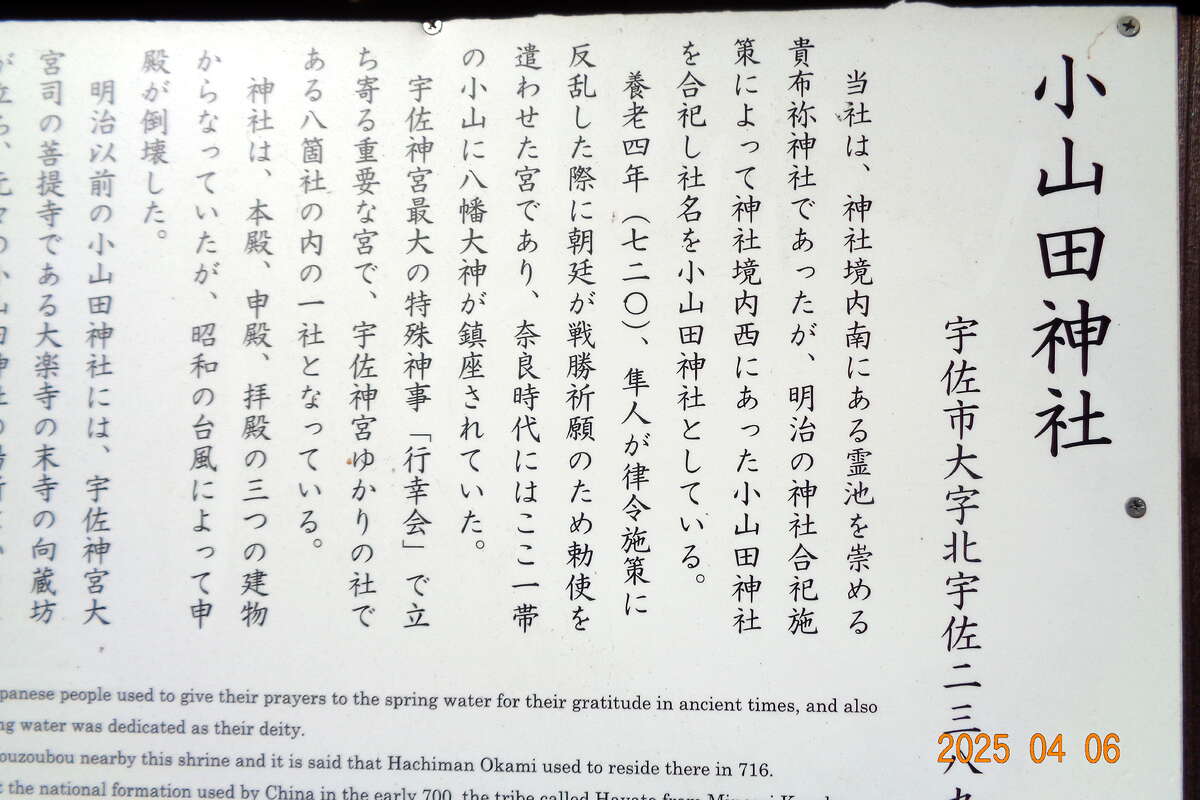 小山田神社
宇佐市大字北宇佐二三八九
当社は、神社境内南にある霊池を崇める
貴布祢神社であったが、明治の神社合祀施
策によって神社境内西にあった小山田神社
を合祀し社名を小山田神社としている。
養老四年（七二〇）、隼人が律令施策に
反乱した際に朝廷が戦勝祈願のため勅使を
遣わせた宮であり、奈良時代にはここ一帯
の小山に八幡大神が鎮座されていた。
宇佐神宮最大の特殊神事「行幸会」で立
ち寄る重要な宮で、宇佐神宮ゆかりの社で
ある八箇社の内の一社となっている。
神社は、本殿、申殿、拝殿の三つの建物
からなっていたが、昭和の台風によって申
殿が倒壊した。
明治以前の小山田神社には、宇佐神宮大
宮司の菩提寺である大楽寺の末寺の向蔵坊
panese people used to give their prayers to the spring water for their gratitude in ancient times, and also
ng water was dedicated as their deity.
ouzoubou nearby this shrine and it is said that Hachiman Okami used to reside there in 716.
t the national formation used by China in the early 700, the tribe called Hayato from
2025 04 06